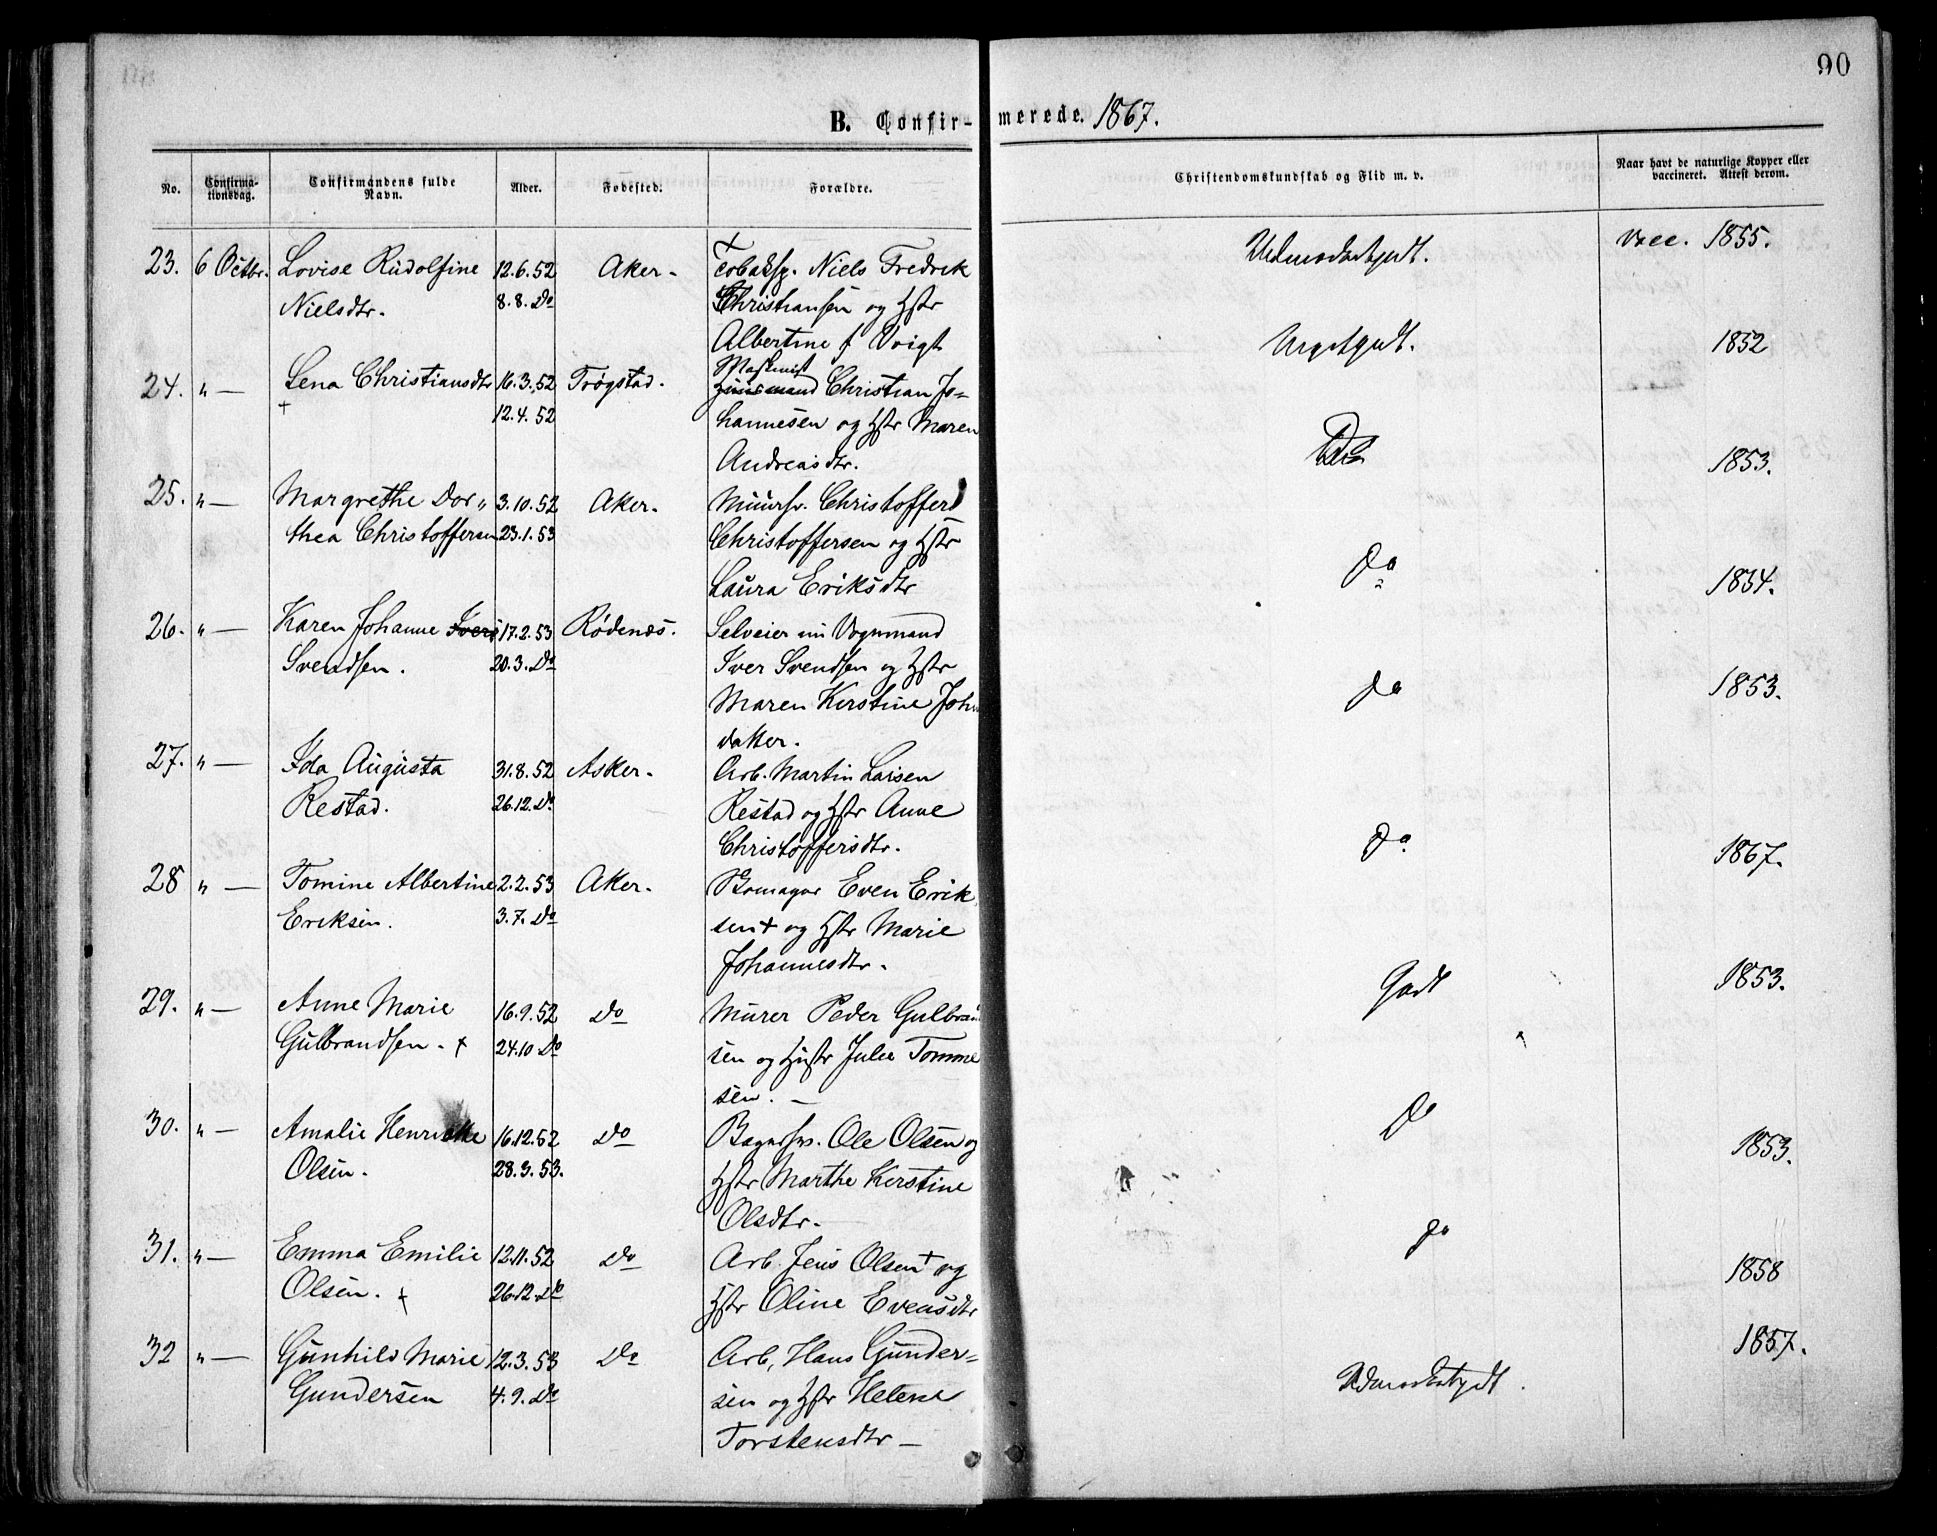 90
B. Confir-merede. 1867.
No.
Confirma-
tionsdag.
Confirmandens fulde
Navn.
Alder.
Fødested.
Forældre.
Christendomskundskab og Flid m. v.
Naar havt de naturlige Kopper eller
vaccineret. Attest derom.
23. 6 Octbr. Lovise Rudolfine 12.6.52 Aker. Tobaksp. Niels Fredrik
Nielsdtr. 8.8. Do Christiansen og Hstr
Albertine f Voigt
vacc. 1855.
24. " — Lena Christiansdtr 16.3.52 Trøgstad. Maskinist
Huusmand Christian Jo-
+ 12.4.52 hannesen og Hstr Maren
Andreasdtr.
Meget godt. 1852
25. " — Margrethe Dor„ 3.10.52 Aker. Muursv. Christoffer
thea Christoffersen 23.1.53 Christoffersen og Hstr
Laura Eriksdtr
Do 1853.
26. " — Karen Johanne Ivers 17.2.53 Rødenæs. Selveier nu Vognmand
Svendsen. 20.3. Do Iver Svendsen og Hstr
Maren Kerstine Johns
datter.
Do 1854.
27. " — Ida Augusta 31.8.52 Asker. Arb. Martin Larsen
Restad. 26.12. Do Restad og Hstr Anne
Christoffersdtr.
Do 1853.
28 " — Tomine Albertine 2.2.53 Aker. Even Erik
Eriksen. 3.7. Do sen + og Hstr Marie
Johannesdtr.
Do 1867.
29. " — Anne Marie 16.9.52 Do Murer Peder Gulbrand
Gulbrandsen. + 24.10 Do sen og Hustr Julie Tomme
sen. —
Godt 1853.
30. " — Amalie Henriette 16.12.52 Do Bagersv. Ole Olsen og
Olsen. 28.3.53. Hstr Marthe Kerstine
Olsdtr.
Do 1853.
31. " — Emma Emilie 12.11.52 Do Arb. Jens Olsen + og
Olsen. + 26.12. Do Hstr Oline Evensdtr
Do 1858
32 " — Gunhild Marie 12.3.53 Do Arb, Hans Gunder-
Gundersen 4.9. Do sen og Hstr Helene
Torstensdtr —
Udmærketgodt. 1857.